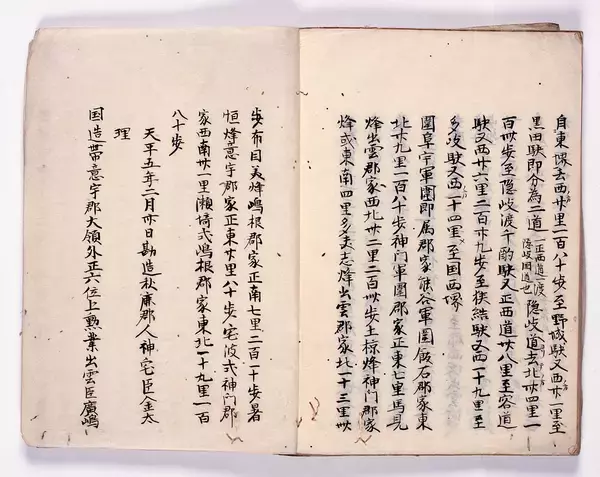 自東堺去西廿里一百八十歩至野城駅又西廿一里至
黒田駅即分為二道一正西道一渡隠岐国道也隠岐道去北卅四里一
百卌歩至隠岐渡千酌駅又正西道卅八里至宍道
駅又西廿六里二百廿九歩至狭結駅又西一十九里至
多岐駅又西一十四里至国西堺
宇軍團即属郡家熊谷軍團飯石郡家東
北廿九里一百八十歩神門軍團郡家正東七里馬見
烽出雲郡家西北卅二里二百卌歩土椋烽神門郡家
烽或東南四里多夫志烽出雲郡家北一十三里卌
歩布目美烽嶋根郡家正南七里二百一十歩暑
恒烽意宇郡家正東廿里八十歩宅波戍神門郡
家西南卅一里瀬埼戍嶋根郡家東北一十九里一百
八十歩
天平五年二月卅日勘造秋鹿郡人神宅臣金太
理
国造帯意宇郡大領外正六位上勲業出雲臣廣嶋